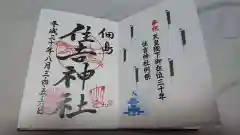 奉祝 天皇陛下御在位三十年
住吉神社例祭
佃島
住吉神社
平成三十年八月三・四・五・六日